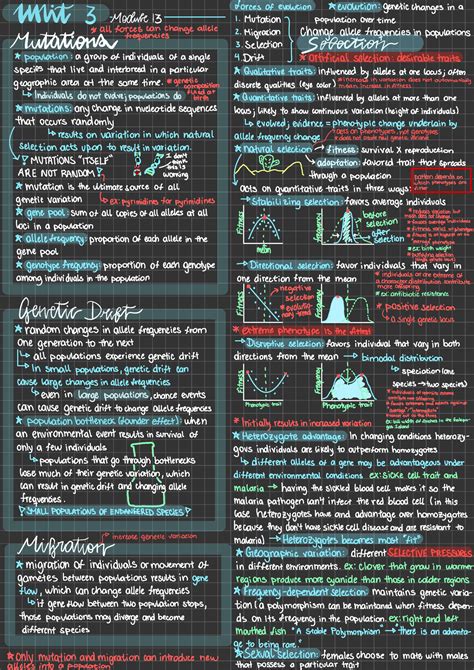 Unit 3 Module 13
* all forces can change allele frequencies
Mutations
* population: a group of individuals of a single
species that live and interbreed in a particular
geographic area at the same time
* genetic composition is set at birth
↳ individuals do not evolve; populations do
* mutations: any change in nucleotide sequences
that occurs randomly
↳ results on variation in which natural
selection acts upon to result in variation.
↳ MUTATIONS "ITSELF"
ARE NOT RANDOM
* mutation is the ultimate source of all
genetic variation
↳ ex: pyrimidines for pyrimidines
* gene pool: sum of all copies of all alleles at all
loci in a population
* allele frequency: proportion of each allele in the
gene pool
* genotype frequency: proportion of each genotype
among individuals in the population
Genetic Drift
* random changes in allele frequencies from
one generation to the next
↳ all populations experience genetic drift
↳ In small populations, genetic drift can
cause large changes in allele frequencies
↳ even in large populations, chance events
can cause genetic drift to change allele frequencies
* population bottleneck (founder effect): when
an environmental event results in survival of
only a few individuals
↳ populations that go through bottlenecks
lose much of their genetic variation, which
can result in genetic drift and changing allele
frequencies.
SMALL POPULATIONS OF ENDANGERED SPECIES
Migration
↳ increase genetic variation
* migration of individuals or movement of
gametes between populations results in gene
flow, which can change allele frequencies
↳ if gene flow between two population stops,
those populations may diverge and become
different species
* only mutation and migration can introduce new
alleles into a population
forces of evolution
1. Mutation
2. Migration
3. Selection
4. Drift
* evolution: genetic changes in a
population over time
change allele frequencies in populations
Selection
* artificial selection: desirable traits
* Qualitative traits: influenced by alleles at one locus; often
discrete qualities (eye color)
* Quantitative traits: influenced by alleles at more than one
locus; likely to show continuous variation (height of individuals)
↳ evolved; evidence = phenotypic change underlain by
allele frequency change
↳ acts on phenotypes, not genotypes
* natural selection → fitness: survival X reproduction
↳ adaptation: favored trait that spreads
through a population
acts on quantitative traits in three ways:
→ Stabilizing selection: favors average individuals
Fitness
mean
before selection
after selection
ex: birth weight
→ Directional selection: favor individuals that vary in
one direction from the mean
* negative selection
* evolutionary trend
ex: antibiotic resistance
* positive selection
↳ a single genetic locus
Fitness
* Extreme phenotype is the fittest
→ Disruptive selection: favors individual that vary in both
directions from the mean → bimodal distribution
↳ speciation (one
species → two species)
Fitness
Phenotypic trait
Fitness
Phenotypic trait
* Initially results in increased variation
* Heterozygote advantage: In changing conditions heterozy-
gous individuals are likely to outperform homozygotes
↳ different alleles of a gene may be advantageous under
different environmental conditions ex: sickle cell trait and
malaria → having the sickled blood cell makes it so the
malaria pathogen can't infect the red blood cell (in this
case heterozygotes have and advantage over homozygotes
because they don't have sickle cell disease and are resistant to
malaria) → Heterozygotes becomes most "fit"
* Geographic variation: different SELECTIVE PRESSURES
in different environments. ex: clover that grow in warmer
regions produce more cyanide than those in colder regions
* Frequency-dependent selection: maintains genetic varia-
tion (a polymorphism can be maintained when fitness depen-
ds on its frequency in the population. ex: right and left
mouthed fish "A Stable Polymorphism" → there is an advanta-
ge to being rare.
* Sexual selection: females choose to mate with males that
that possess a particular trait